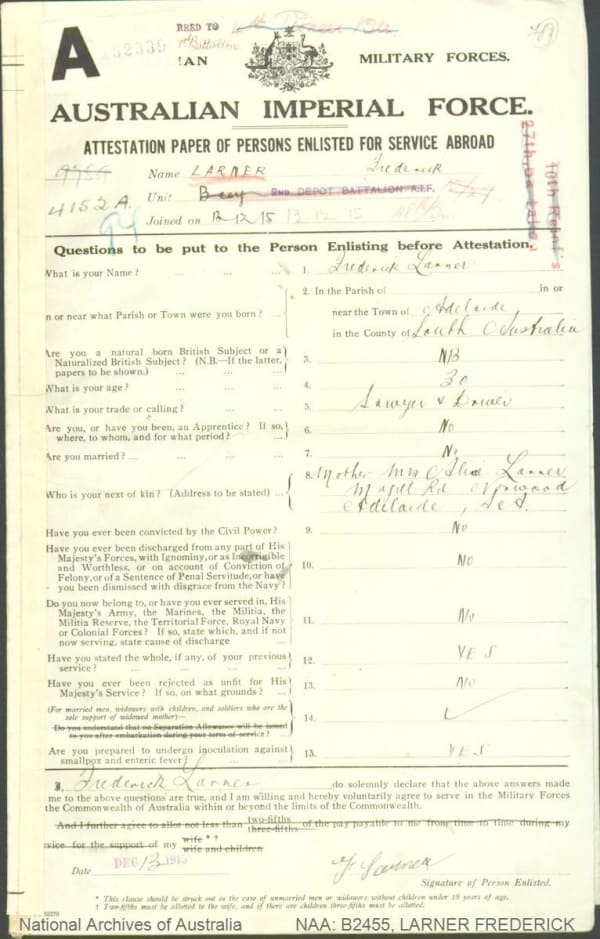 A
52339
RRED TO
1st Battalion
IAN MILITARY FORCES.
AUSTRALIAN IMPERIAL FORCE.
ATTESTATION PAPER OF PERSONS ENLISTED FOR SERVICE ABROAD
Name LARNER Frederick
4152A.
Unit B Coy 2ND DEPOT BATTALION A.I.F.
Joined on 13-12-15 13 12 15
94
10th Reinf's
27th Battalion
Questions to be put to the Person Enlisting before Attestation.
What is your Name? ... ... ... 1. Frederick Larner
2. In the Parish of in or
n or near what Parish or Town were you born? ... near the Town of Adelaide
in the County of South Australia
Are you a natural born British Subject or a
Naturalized British Subject? (N.B.—If the latter,
papers to be shown.) ... ... 3. NB
What is your age? ... ... ... 4. 30
What is your trade or calling? ... ... 5. Sawyer & Driver
Are you, or have you been, an Apprentice? If so,
where, to whom, and for what period? ... 6. No
Are you married? ... ... ... 7. No
8. Mother Mrs Larner
Who is your next of kin? (Address to be stated) ... Magill Rd Norwood
Adelaide, S.A.
Have you ever been convicted by the Civil Power? 9. No
Have you ever been discharged from any part of His
Majesty's Forces, with Ignominy, or as Incorrigible
and Worthless, or on account of Conviction of
Felony, or of a Sentence of Penal Servitude, or have
you been dismissed with disgrace from the Navy? 10. No
Do you now belong to, or have you ever served in, His
Majesty's Army, the Marines, the Militia, the
Militia Reserve, the Territorial Force, Royal Navy
or Colonial Forces? If so, state which, and if not
now serving, state cause of discharge 11. No
Have you stated the whole, if any, of your previous
service? ... ... ... 12. YES
Have you ever been rejected as unfit for His
Majesty's Service? If so, on what grounds? ... 13. No
(For married men, widowers with children, and soldiers who are the
sole support of widowed mother)—
Do you understand that no Separation Allowance will be issued
to you after embarkation during your term of service? 14. ✓
Are you prepared to undergo inoculation against
smallpox and enteric fever? ... ... 15. YES
I, Frederick Larner do solemnly declare that the above answers made
me to the above questions are true, and I am willing and hereby voluntarily agree to serve in the Military Forces
the Commonwealth of Australia within or beyond the limits of the Commonwealth.
And I further agree to allot not less than two-fifths three-fifths of the pay payable to me from time to time during my
rvice for the support of my wife * † wife and children
Date DEC 13 1915
F Larner
Signature of Person Enlisted.
* This clause should be struck out in the case of unmarried men or widowers without children under 18 years of age.
† Two-fifths must be allotted to the wife, and if there are children three-fifths must be allotted.
National Archives of Australia NAA: B2455, LARNER FREDERICK